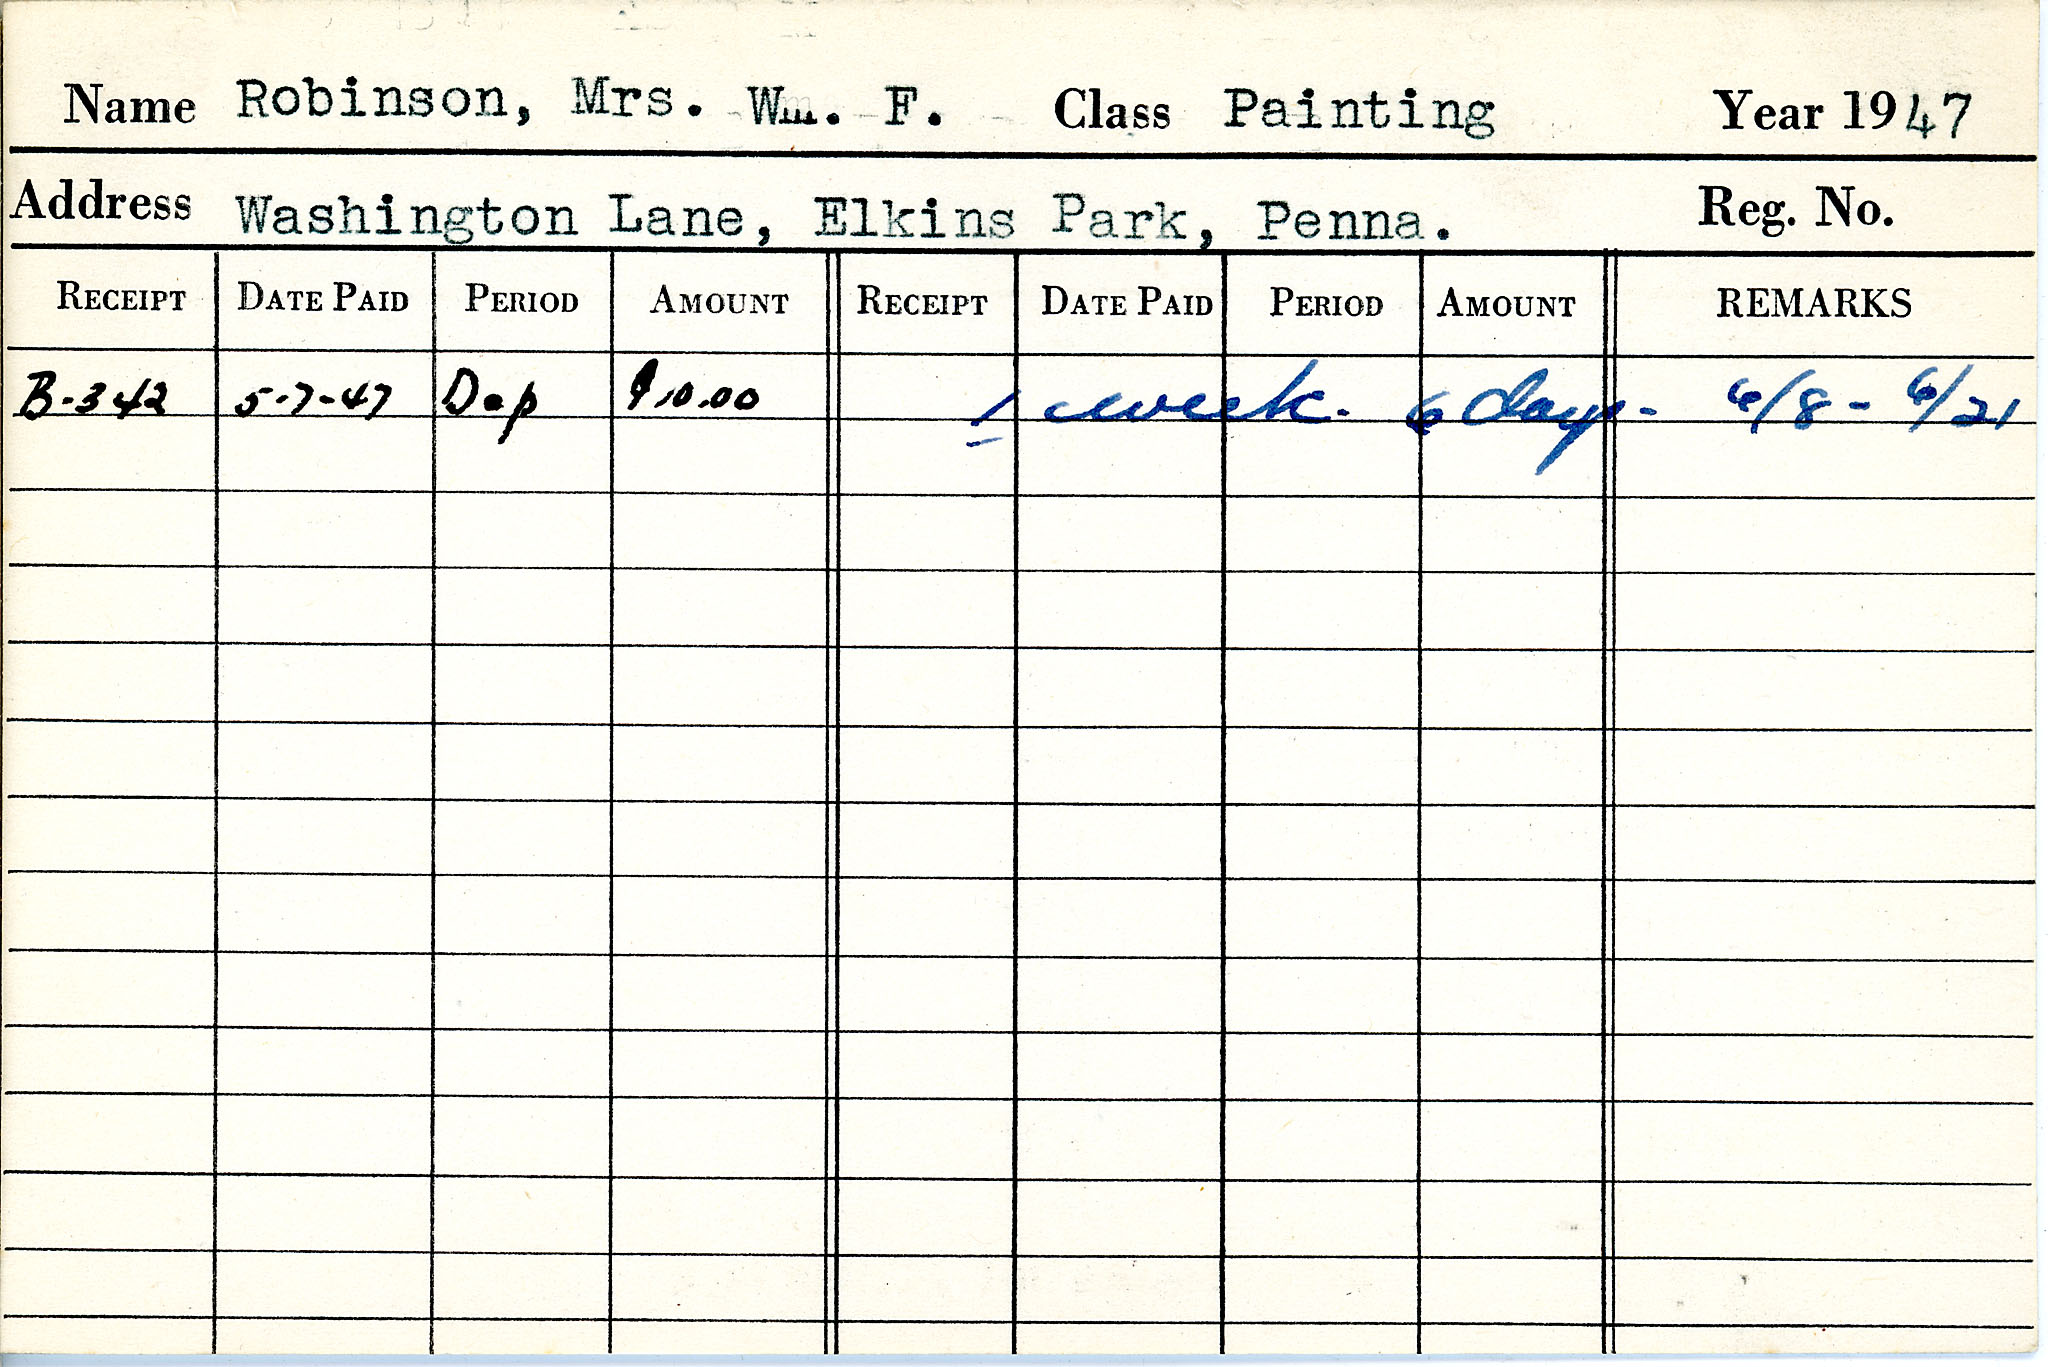 Name Robinson, Mrs. Wm. F. Class Painting Year 1947
Address Washington Lane, Elkins Park, Penna. Reg. No.
RECEIPT DATE PAID PERIOD AMOUNT RECEIPT DATE PAID PERIOD AMOUNT REMARKS
B-342 5-7-47 Dep $10.00 1 week - 6 days - 6/8 - 6/21